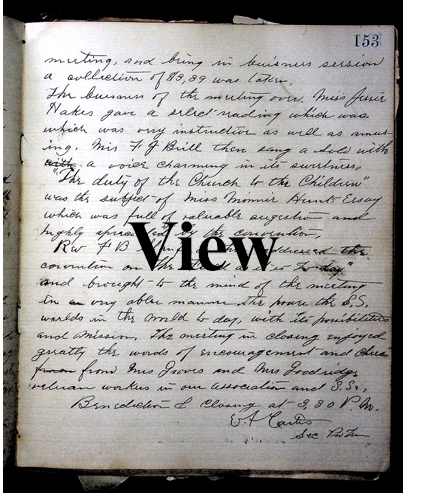 153
meeting, and being in buisness session
a collection of $3,39 was taken.
The buisness of the meeting over. Miss Jessie
Hakes gave a select reading which was
which was very instructive as well as amus-
ing. Mrs F J Brill then sang a solo with
with a voice charming in its sweetness,
"The duty of the Church to the Children"
was the subject of Miss Monnie Hunts Essay
which was full of valuable sugestion and
highly by the convention,
Rev F B the
convention on the to day"
and brought to the mind of the meeting
in a very able manner the power the S.S.
in the world to day, with its posibilities
and mission. The meeting in closing enjoyed
greatly the words of encouragement and
from from Mrs Groves and Mrs Goodridge
veteran workers in our association and S.S.
Benediction & Closing at 3,30 P.M.
Curtis
Sec
View